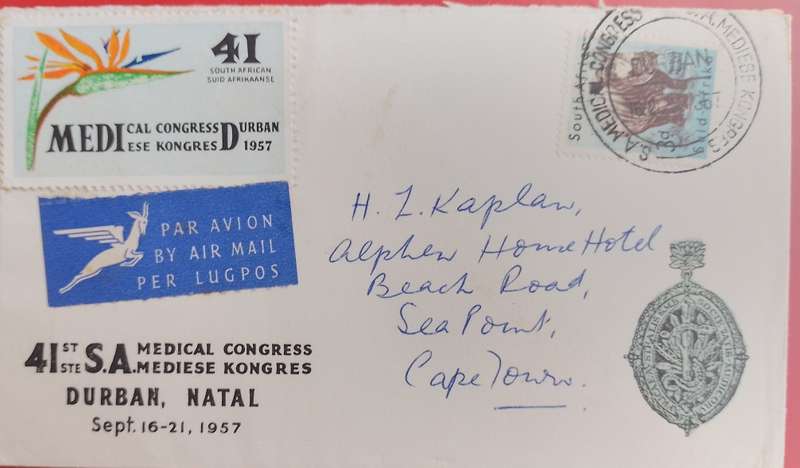 41
SOUTH AFRICAN
SUID AFRIKAANSE
MEDICAL CONGRESS DURBAN
MEDIESE KONGRES 1957
PAR AVION
BY AIR MAIL
PER LUGPOS
41ST S.A. MEDICAL CONGRESS
41STE S.A. MEDIESE KONGRES
DURBAN, NATAL
Sept. 16-21, 1957
South Afri
3d
Suid Afrika
S.A. MEDICAL CONGRESS
S.A. MEDIESE KONGRES
H. I. Kaplan,
Alphen Home Hotel
Beach Road,
Sea Point,
Cape Town.